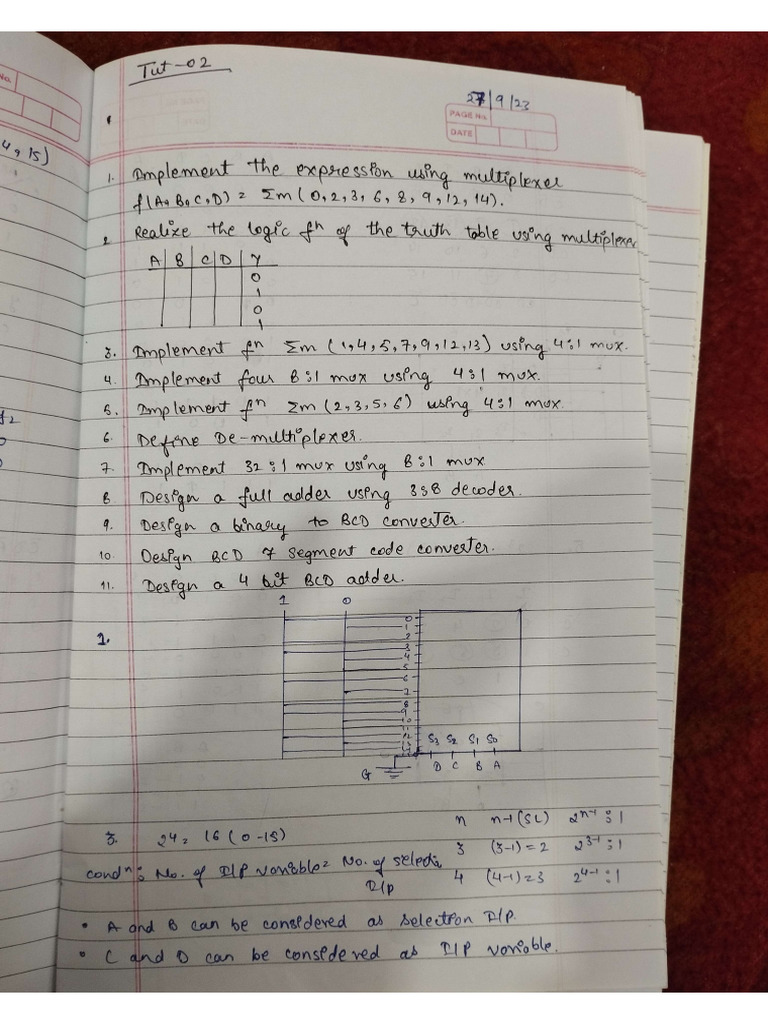 No.
4, 15)
Tut-02
27/9/23
PAGE No.
DATE
1. Implement the expression using multiplexer
f(A,B,C,D) = Σm (0,2,3,6,8,9,12,14).
2 Realize the logic fⁿ of the truth table using multiplexer
A B C D Y
0
1
0
1
3. Implement fⁿ Σm (1,4,5,7,9,12,13) using 4:1 mux.
4. Implement four 8:1 mux using 4:1 mux.
5. Implement fⁿ Σm (2,3,5,6) using 4:1 mux.
6. Define De-multiplexer.
7. Implement 32:1 mux using 8:1 mux
8 Design a full adder using 3:8 decoder.
9. Design a binary to BCD converter.
10. Design BCD 7 segment code converter.
11. Design a 4 bit BCD adder.
1 0
1.
0
1
2
3
4
5
6
7
8
9
10
11
12
S3 S2 S1 S0
D C B A
G
n n-1(SL) 2ⁿ⁻¹:1
3. 2⁴ = 16 (0-15)
3 (3-1)=2 2³⁻¹:1
condⁿ: No. of I/P variable = No. of selectⁿ
I/P
4 (4-1)=3 2⁴⁻¹:1
• A and B can be considered as selection I/P.
• C and D can be considered as I/P variable.